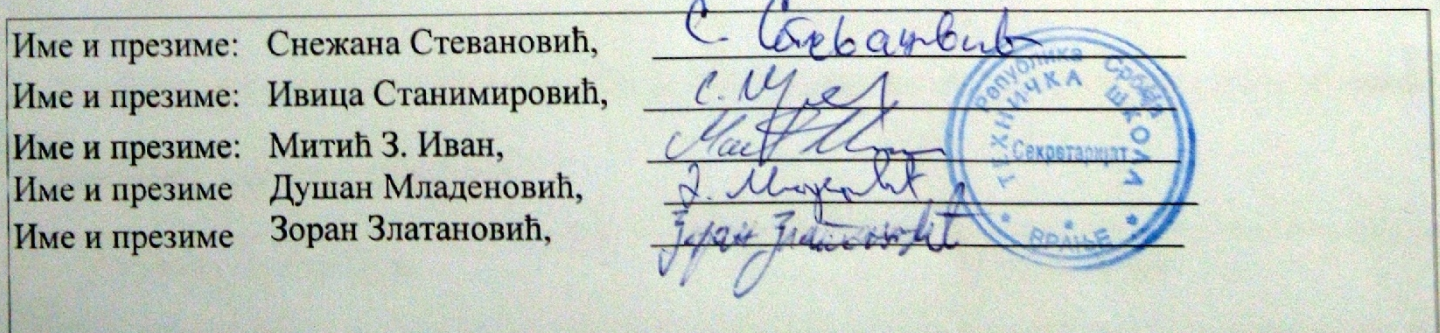 Име и презиме: Снежана Стевановић, С. Стевановић
Име и презиме: Ивица Станимировић,
Име и презиме: Митић З. Иван,
Име и презиме Душан Младеновић,
Име и презиме Зоран Златановић, Зоран Златановић
Република Србија
ТЕХНИЧКА ШКОЛА
Секретаријат
ВРАЊЕ